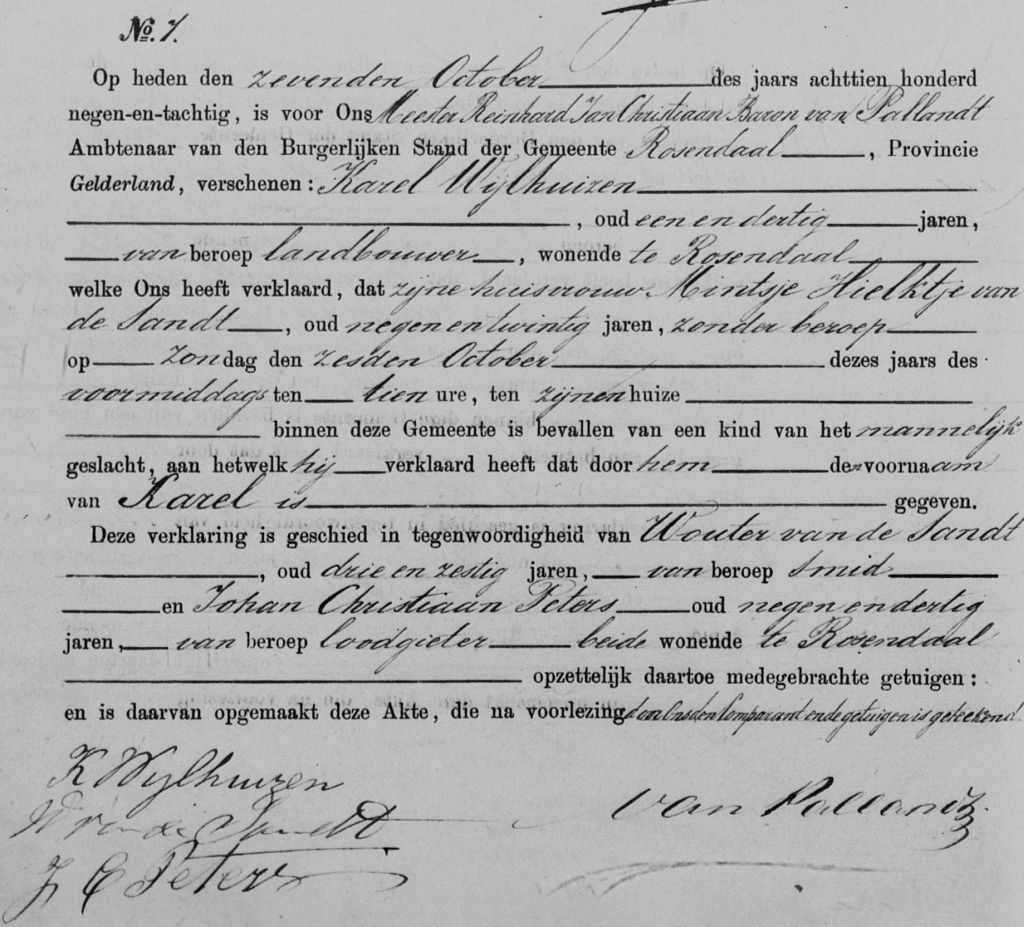 No. 7.
Op heden den zevenden October des jaars achttien honderd
negen-en-tachtig, is voor Ons Meester Reinhard Jan Christiaan Baron van Pallandt
Ambtenaar van den Burgerlijken Stand der Gemeente Rosendaal, Provincie
Gelderland, verschenen: Karel Wijlhuizen
, oud een en dertig jaren,
van beroep landbouwer, wonende te Rosendaal
welke Ons heeft verklaard, dat zijne huisvrouw Mintsje Hielktje van
de Sandt, oud negen en twintig jaren, zonder beroep
op Zondag den zesden October dezes jaars des
voormiddags ten tien ure, ten zijnen huize
binnen deze Gemeente is bevallen van een kind van het mannelijk
geslacht, aan hetwelk hij verklaard heeft dat door hem de voornaam
van Karel is gegeven.
Deze verklaring is geschied in tegenwoordigheid van Wouter van de Sandt
, oud drie en zestig jaren, van beroep smid
en Johan Christiaan Peters oud negen en dertig
jaren, van beroep loodgieter beide wonende te Rosendaal
opzettelijk daartoe medegebrachte getuigen:
en is daarvan opgemaakt deze Akte, die na voorlezing door Ons den Comparant en de getuigen is geteekend.
K Wijlhuizen
W van de Sandt
van Pallandt
J C Peters